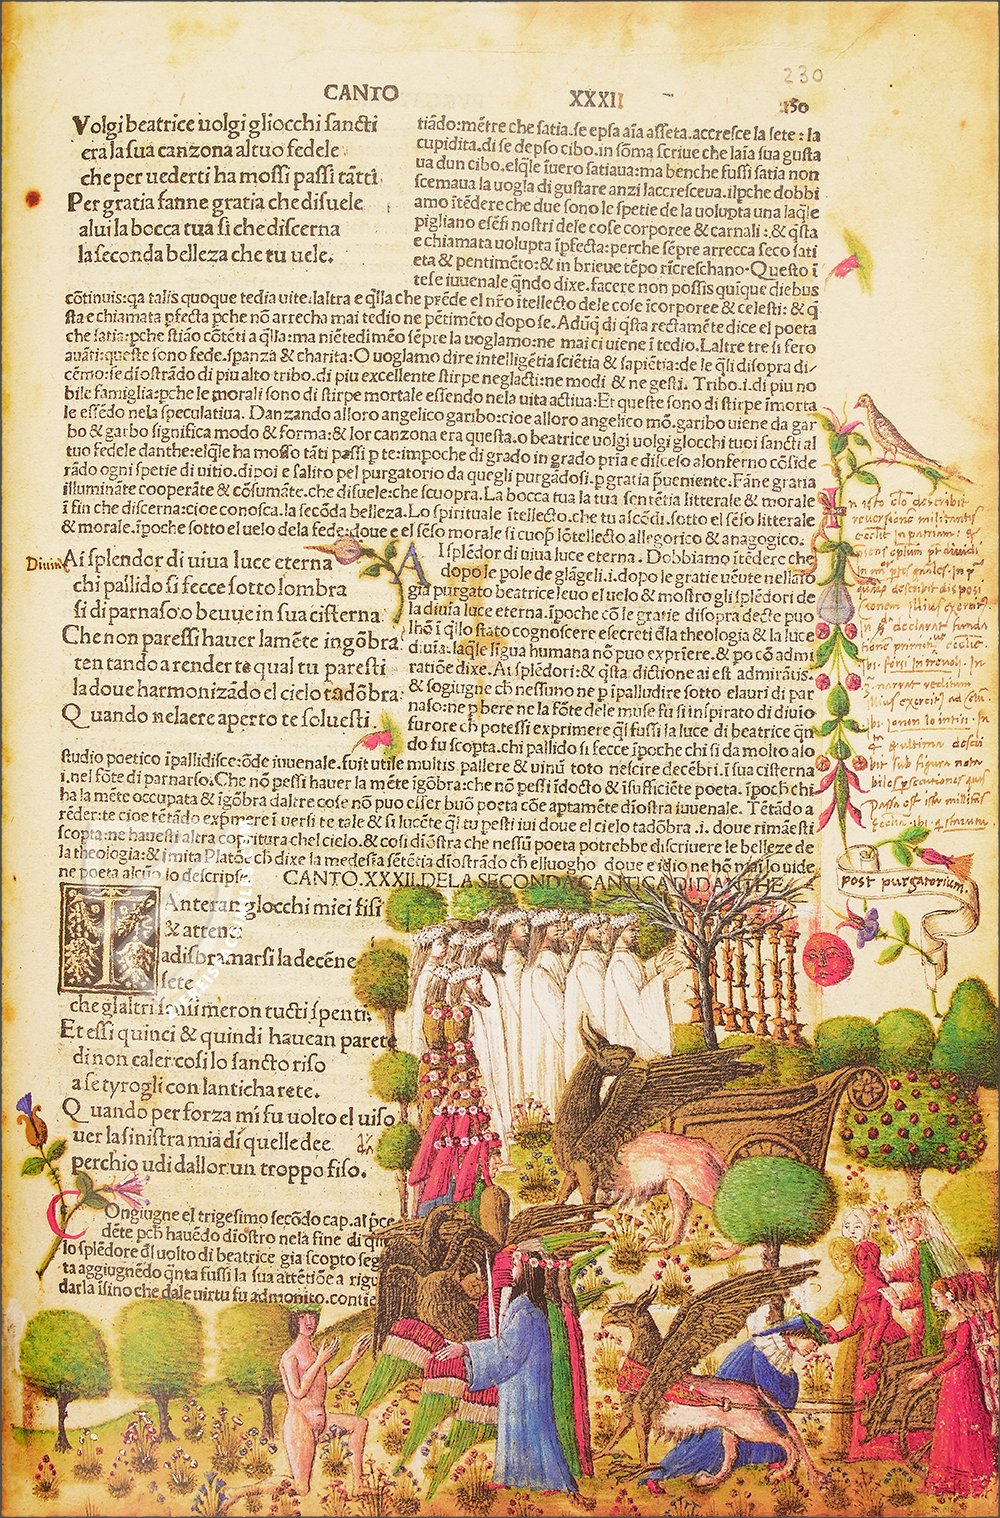 230
CANTO XXXII 150
Volgi beatrice uolgi gliocchi sancti
era la sua canzona al tuo fedele
che per uederti ha mossi passi tãtti
Per gratia fanne gratia che disuele
a lui la bocca tua si che discerna
la seconda belleza che tu uele.
tiãdo: mẽtre che satia. se epsa aĩa asseta. accresce la sete: la
cupidita. di se depso cibo. in sõma scriue che laĩa sua gusta
ua dun cibo. elqĩe ĩuero satiaua: ma benche fussi satia non
scemaua la uogla di gustare anzi laccresceua. ilpche dobbi
amo ĩtẽdere che due sono le spetie de la uolupta una laqĩe
pigliano esẽsi nostri dele cose corporee & carnali: & q̃sta
e chiamata uolupta ĩpfecta: perche sẽpre arrecca seco sati
eta & pentimẽto: & in brieue tẽpo rĩcreschano. Questo ĩ
tese iuuenale q̃ndo dixe. facere non possis quĩque diebus
cõtinuis: qa talis quoque tedia uite. laltra e q̃lla che prẽde el nr̃o ĩtellecto dele cose ĩcorporee & celesti: & q̃
sta e chiamata pfecta pche nõ arrecha mai tedio ne pẽtimẽto dopo se. Adũq̃ di q̃sta rectamẽte dice el poeta
che satia: pche stião cõtẽti a q̃lla: ma niẽtedimẽo sẽpre la uoglamo: ne mai ci uiene ĩ tedio. Laltre tre si fero
auãti: queste sono fede. spanza & charita: O uoglamo dire intelligẽtia sciẽtia & sapiẽtia: de le q̃li disopra di/
cẽmo: se dĩostrãdo di piu alto tribo. di piu excellente stirpe neglacti: ne modi & ne gesti. Tribo. i. di piu no
bile famiglia: pche le morali sono di stirpe mortale essendo nela uita actiua: Et queste sono di stirpe ĩmorta
le essẽdo nela speculatiua. Danzando alloro angelico garibo: cioe alloro angelico mõ. garibo uiene da gar
bo & garbo significa modo & forma: & lor canzona era questa. o beatrice uolgi uolgi glocchi tuoi sancti al
tuo fedele danthe: elqĩe ha mosso tãti passi p te: impoche di grado in grado pria e disceso alonferno cõside
rãdo ogni spetie di uitio. dipoi e salito pel purgatorio da quegli purgãdosi. p gratia p̃ueniente. Fãne gratia
illuminãte cooperãte & cõsumãte. che disuele: che scuopra. La bocca tua la tua sentẽtia litterale & morale
ĩ fin che discerna: cioe conosca. la secõda belleza. Lo spirituale ĩtellecto. che tu ascõdi. sotto el sẽso litterale
& morale. ĩpoche sotto el uelo dela fede: doue e el sẽso morale si cuop̃ lõtellecto allegorico & anagogico.
Ai splendor di uiua luce eterna
chi pallido si fecce sotto lombra
si di parnaso o beuue in sua cisterna
Che non paressi hauer lamẽte ingõbra
tentando a render te qual tu paresti
la doue harmonizãdo el cielo tadõbra
Quando nelaere aperto te soluesti.
A
I splẽdor di uiua luce eterna. Dobbiamo ĩtẽdere che
dopo le pole de glãgeli. i. dopo le gratie uẽute nellaio
gia purgato beatrice leuo el uelo & mostro gli splẽdori de
la diuĩa luce eterna. ĩpoche cõ le gratie disopra decte puo
lhõ ĩ q̃llo stato cognoscere esecreti d̃la theologia & la luce
diuĩa. laqĩe lĩgua humana nõ puo exprĩere. & po cõ admi
ratiõe dixe. Ai splẽdori: & q̃sta dictione ai est admirãtis.
& sogiugne ch̃ nessuno ne p ĩpalludire sotto elauri di par
naso: ne p bere ne la fõte dele muse fu si inspirato di diuio
furore ch̃ potessi exprimere q̃l fussi la luce di beatrice q̃n
do fu scopta. chi pallido si fecce ĩpoche chi si da molto alo
studio poetico ĩpallidisce: õde ĩuuenale. fuit utile multis pallere & uinũ toto nescire decẽbri. ĩ sua cisterna
i. nel fõte di parnaso. Che nõ pessi hauer la mẽte ĩgõbra: che nõ pessi ĩdocto & ĩsufficiẽte poeta. ĩpoch̃ chi
ha la mẽte occupata & ĩgõbra daltre cose nõ puo esser buõ poeta cõe aptamẽte dĩostra iuuenale. Tẽtãdo a
rẽder: te cioe tẽtãdo expmere ĩ uersi te tale & si lucẽte q̃l tu pesti iui doue el cielo tadõbra. i. doue rimãesti
scopta: ne hauesti altra copritura chel cielo. & cosi dĩostra che nessũ poeta potrebbe discriuere le belleze de
la theologia: & imita Platõe ch̃ dixe la medesĩa sẽtẽtia dĩostrãdo ch̃ elluogho doue e idio ne hõ mai lo uide
ne poeta alcũo lo descripse. CANTO. XXXII. DE LA SECONDA CANTICA DI DANTHE
post purgatorium.
T
Anteran glocchi miei fisi
& attenti
adisbramarsi la decẽne
sete
che glaltri sensi meron tucti spenti.
Et essi quinci & quindi haucan parete
di non caler. cosi lo sancto riso
a se tyrogli con lanticha rete.
Quando per forza mi fu uolto el uiso
uer la sinistra mia di quelle dee
perchio udi dallor. un troppo fiso.
C
Ongiugne el trigesimo secõdo cap. al p̃ce
dẽte pch̃ hauẽdo dĩostro nela fine di
lo splẽdore d̃l uolto di beatrice gia scopto
ta aggiugnẽdo q̃nta fussi la sua attẽtiõe a
darla ĩsino che dale uirtu fu admonito.